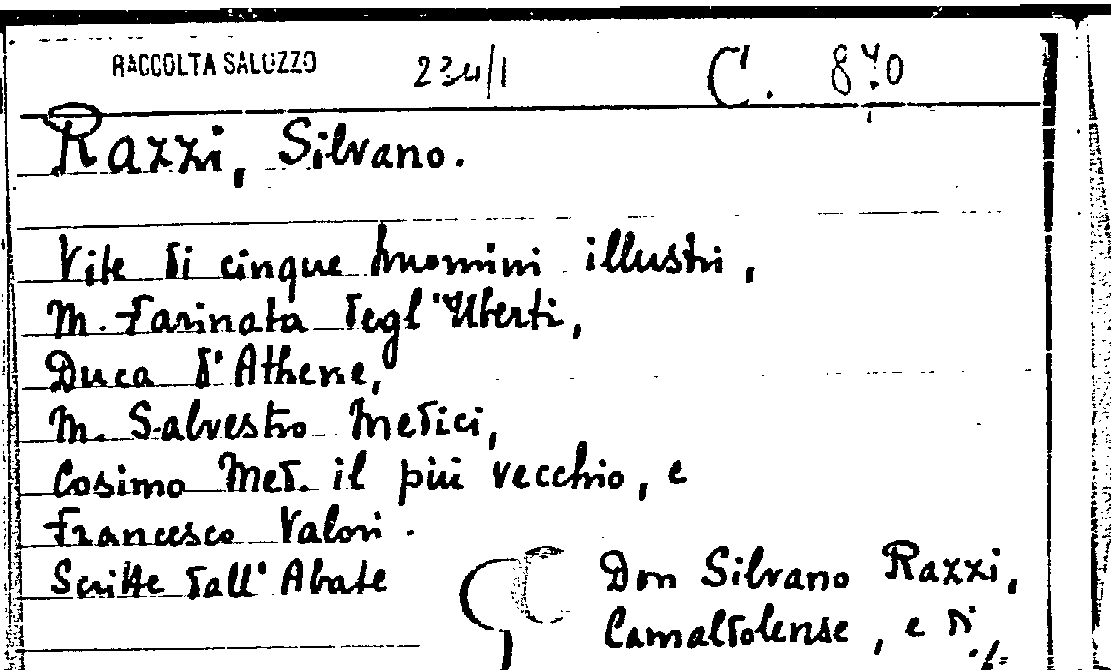 RACCOLTA SALUZZO 234/1 C. 840
Razzi, Silvano.
Vite di cinque huomini illustri,
M. Farinata degl'Uberti,
Duca d'Athene,
M. Salvestro Medici,
Cosimo Med. il più vecchio, e
Francesco Valori.
Scritte dall'Abate
Don Silvano Razzi,
Camaldolense, e di